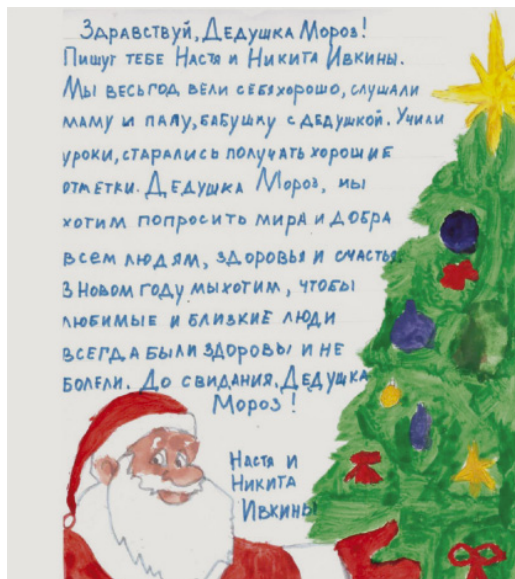 Здравствуй, Дедушка Мороз!
Пишут тебе Настя и Никита Ивкины.
Мы весь год вели себя хорошо, слушали
маму и папу, бабушку с дедушкой. Учили
уроки, старались получать хорошие
отметки. Дедушка Мороз, мы
хотим попросить мира и добра
всем людям, здоровья и счастья.
В Новом году мы хотим, чтобы
любимые и близкие люди
всегда были здоровы и не
болели. До свидания, Дедушка
Мороз!
Настя и
Никита
Ивкины